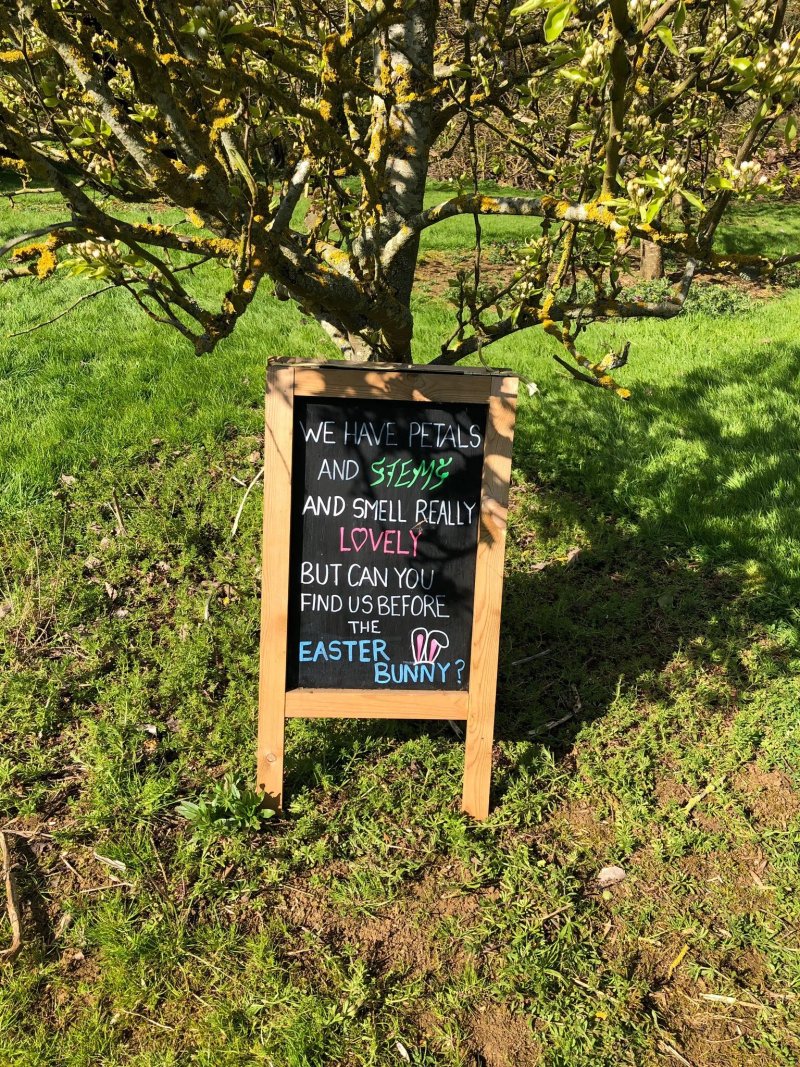 WE HAVE PETALS
AND STEMS
AND SMELL REALLY
LOVELY
BUT CAN YOU
FIND US BEFORE
THE
EASTER
BUNNY?